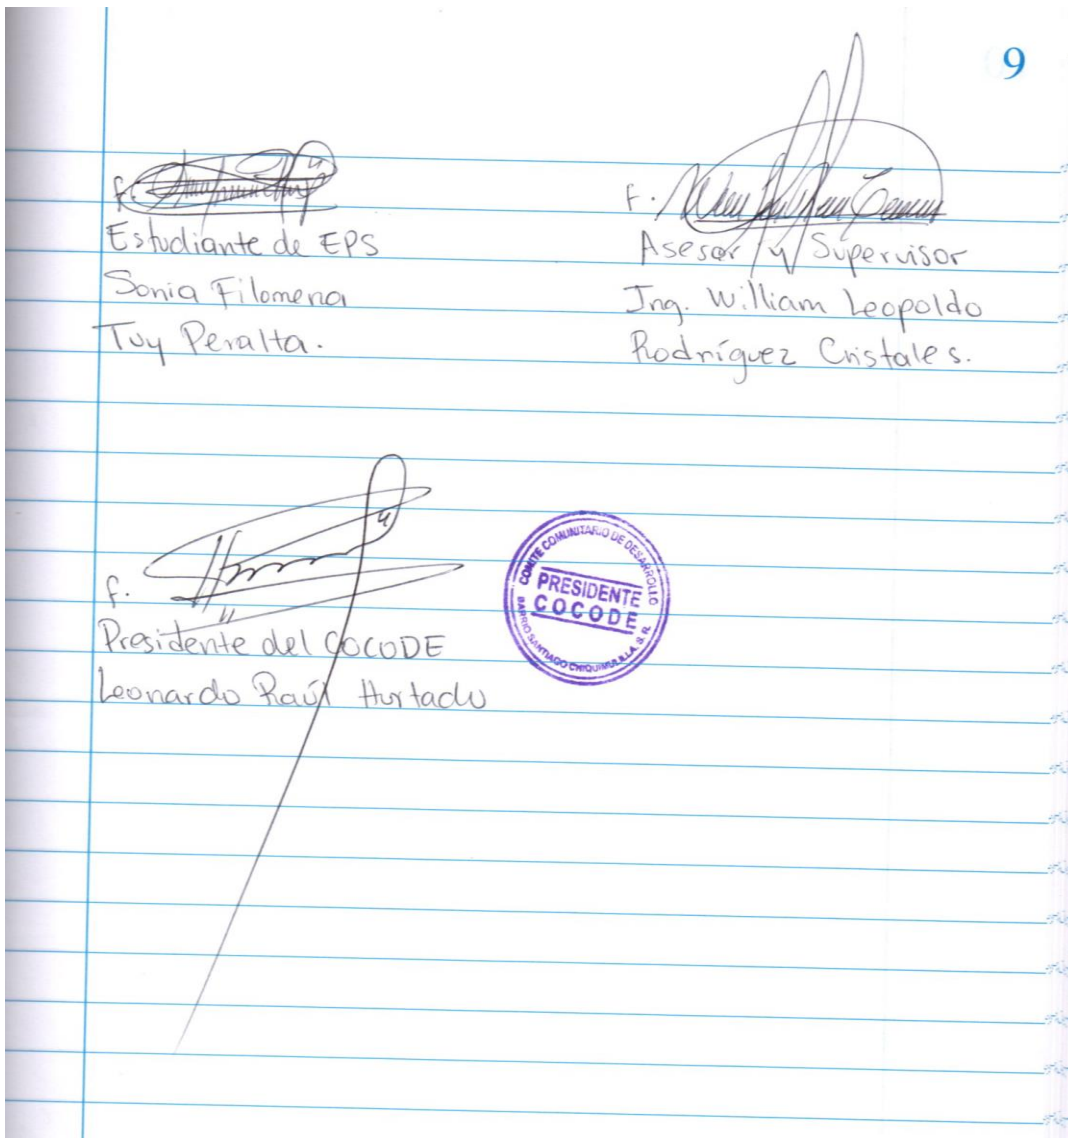 9
f.
Estudiante de EPS
Sonia Filomena
Tuy Peralta.
f.
Asesor y Supervisor
Ing. William Leopoldo
Rodríguez Cristales.
f.
Presidente del COCODE
Leonardo Raúl Hurtado
COMITE COMUNITARIO DE DESARROLLO
PRESIDENTE
COCODE
BARRIO SANTIAGO CHIQUIMULILLA, S. R.